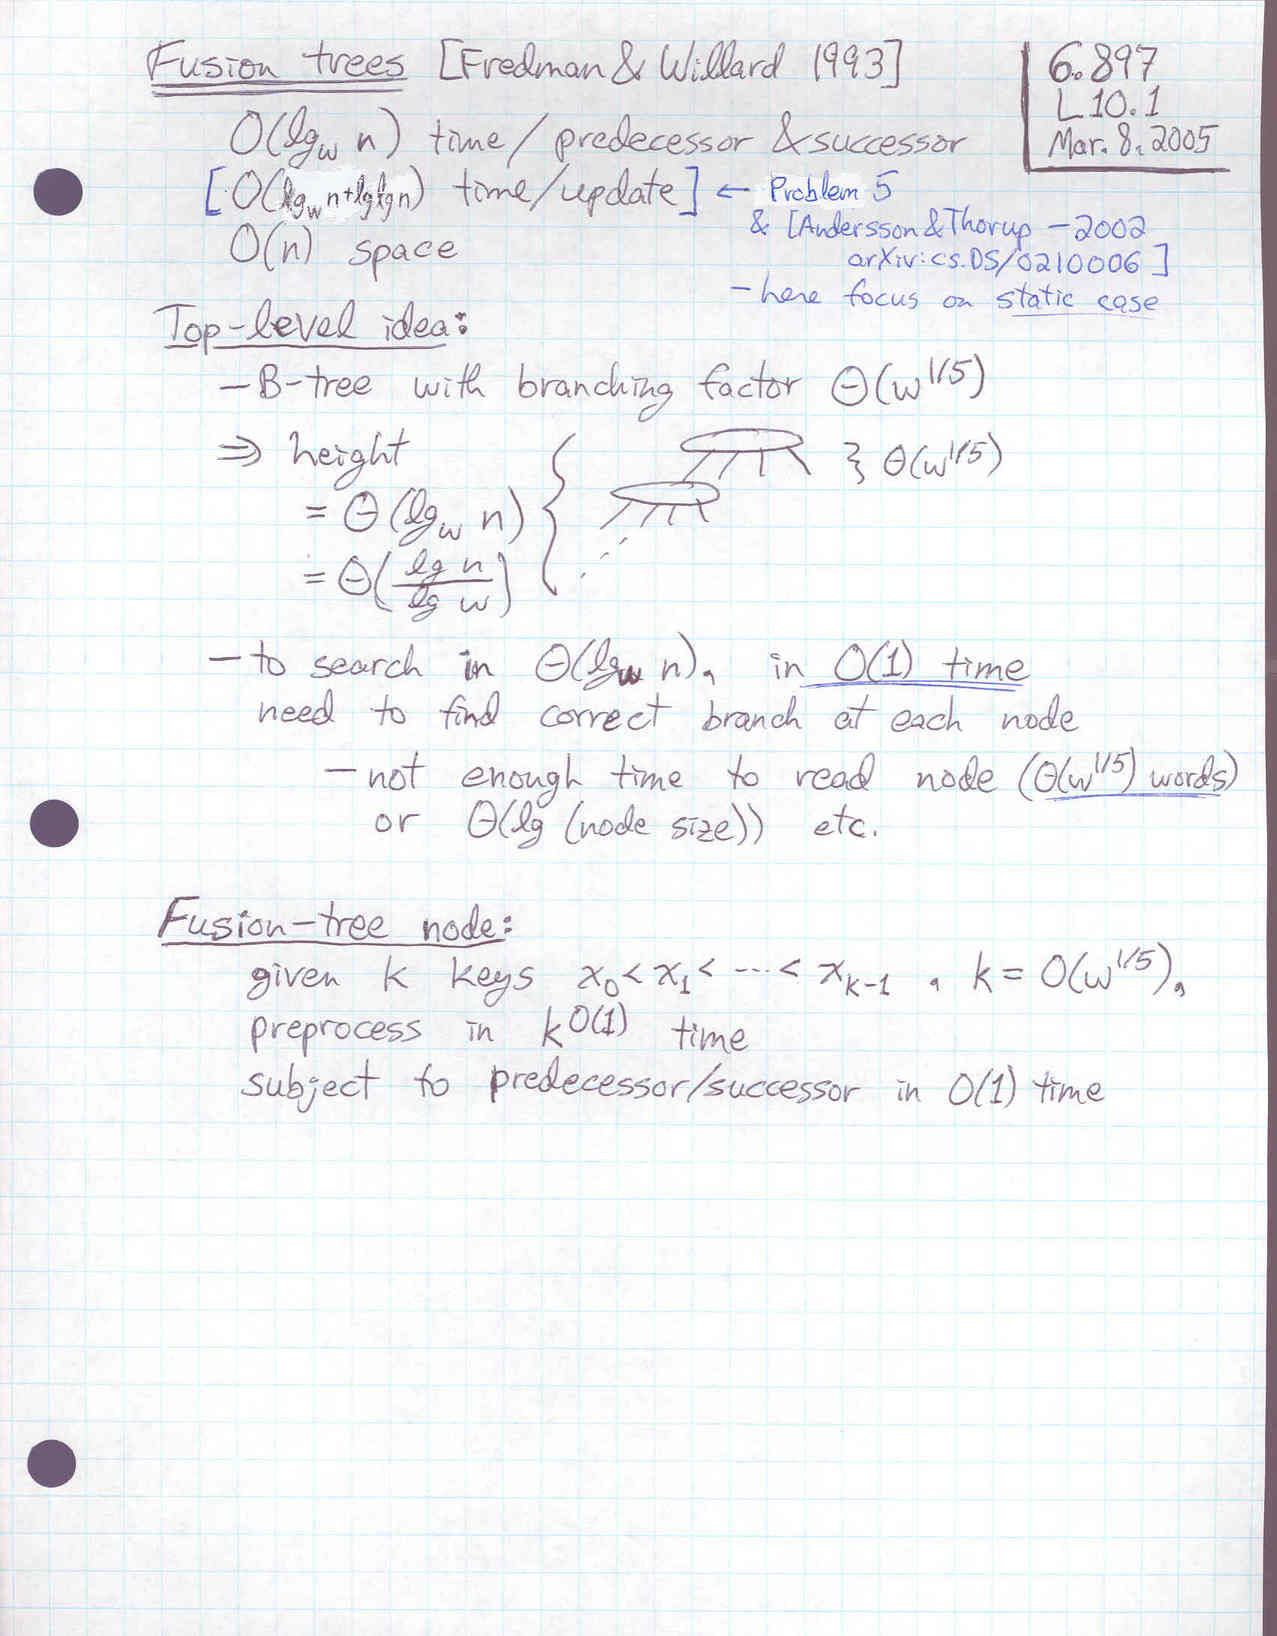 Fusion trees [Fredman & Willard 1993]
6.897
L10.1
Mar. 8, 2005
O(lg_w n) time / predecessor & successor
[O(lg_w n + lg lg n) time/update] ← Problem 5
& [Andersson & Thorup – 2002
arXiv:cs.DS/0210006]
– here focus on static case
O(n) space
Top-level idea:
– B-tree with branching factor Θ(w^{1/5})
⇒ height
= Θ(lg_w n)
= Θ(lg n / lg w)
} Θ(w^{1/5})
– to search in Θ(lg_w n), in O(1) time
need to find correct branch at each node
– not enough time to read node (Θ(w^{1/5}) words)
or Θ(lg (node size)) etc.
Fusion-tree node:
given k keys x_0 < x_1 < ··· < x_{k-1}, k = O(w^{1/5}),
preprocess in k^{O(1)} time
subject to predecessor/successor in O(1) time